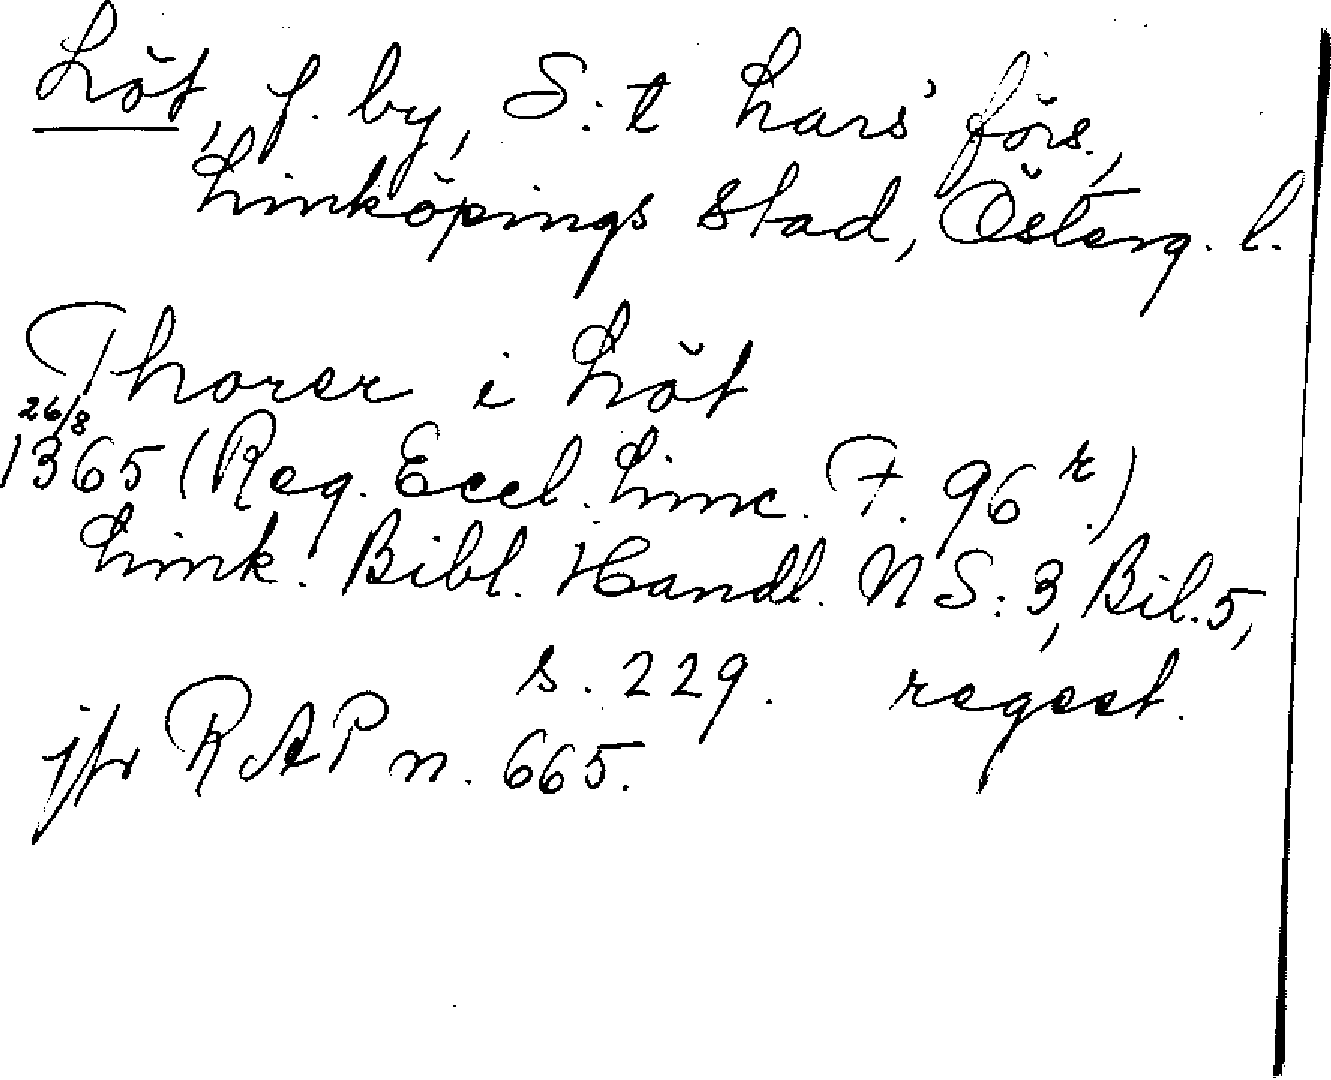 Löt, f. by, S:t Lars' förs.,
Linköpings stad, Österg. l.
Thorer i Löt
26/8
1365 (Reg. Eccl. Linc. F. 96 r.)
Link. Bibl. Handl. NS:3, Bil. 5,
s. 229. regest.
jfr RAP n. 665.